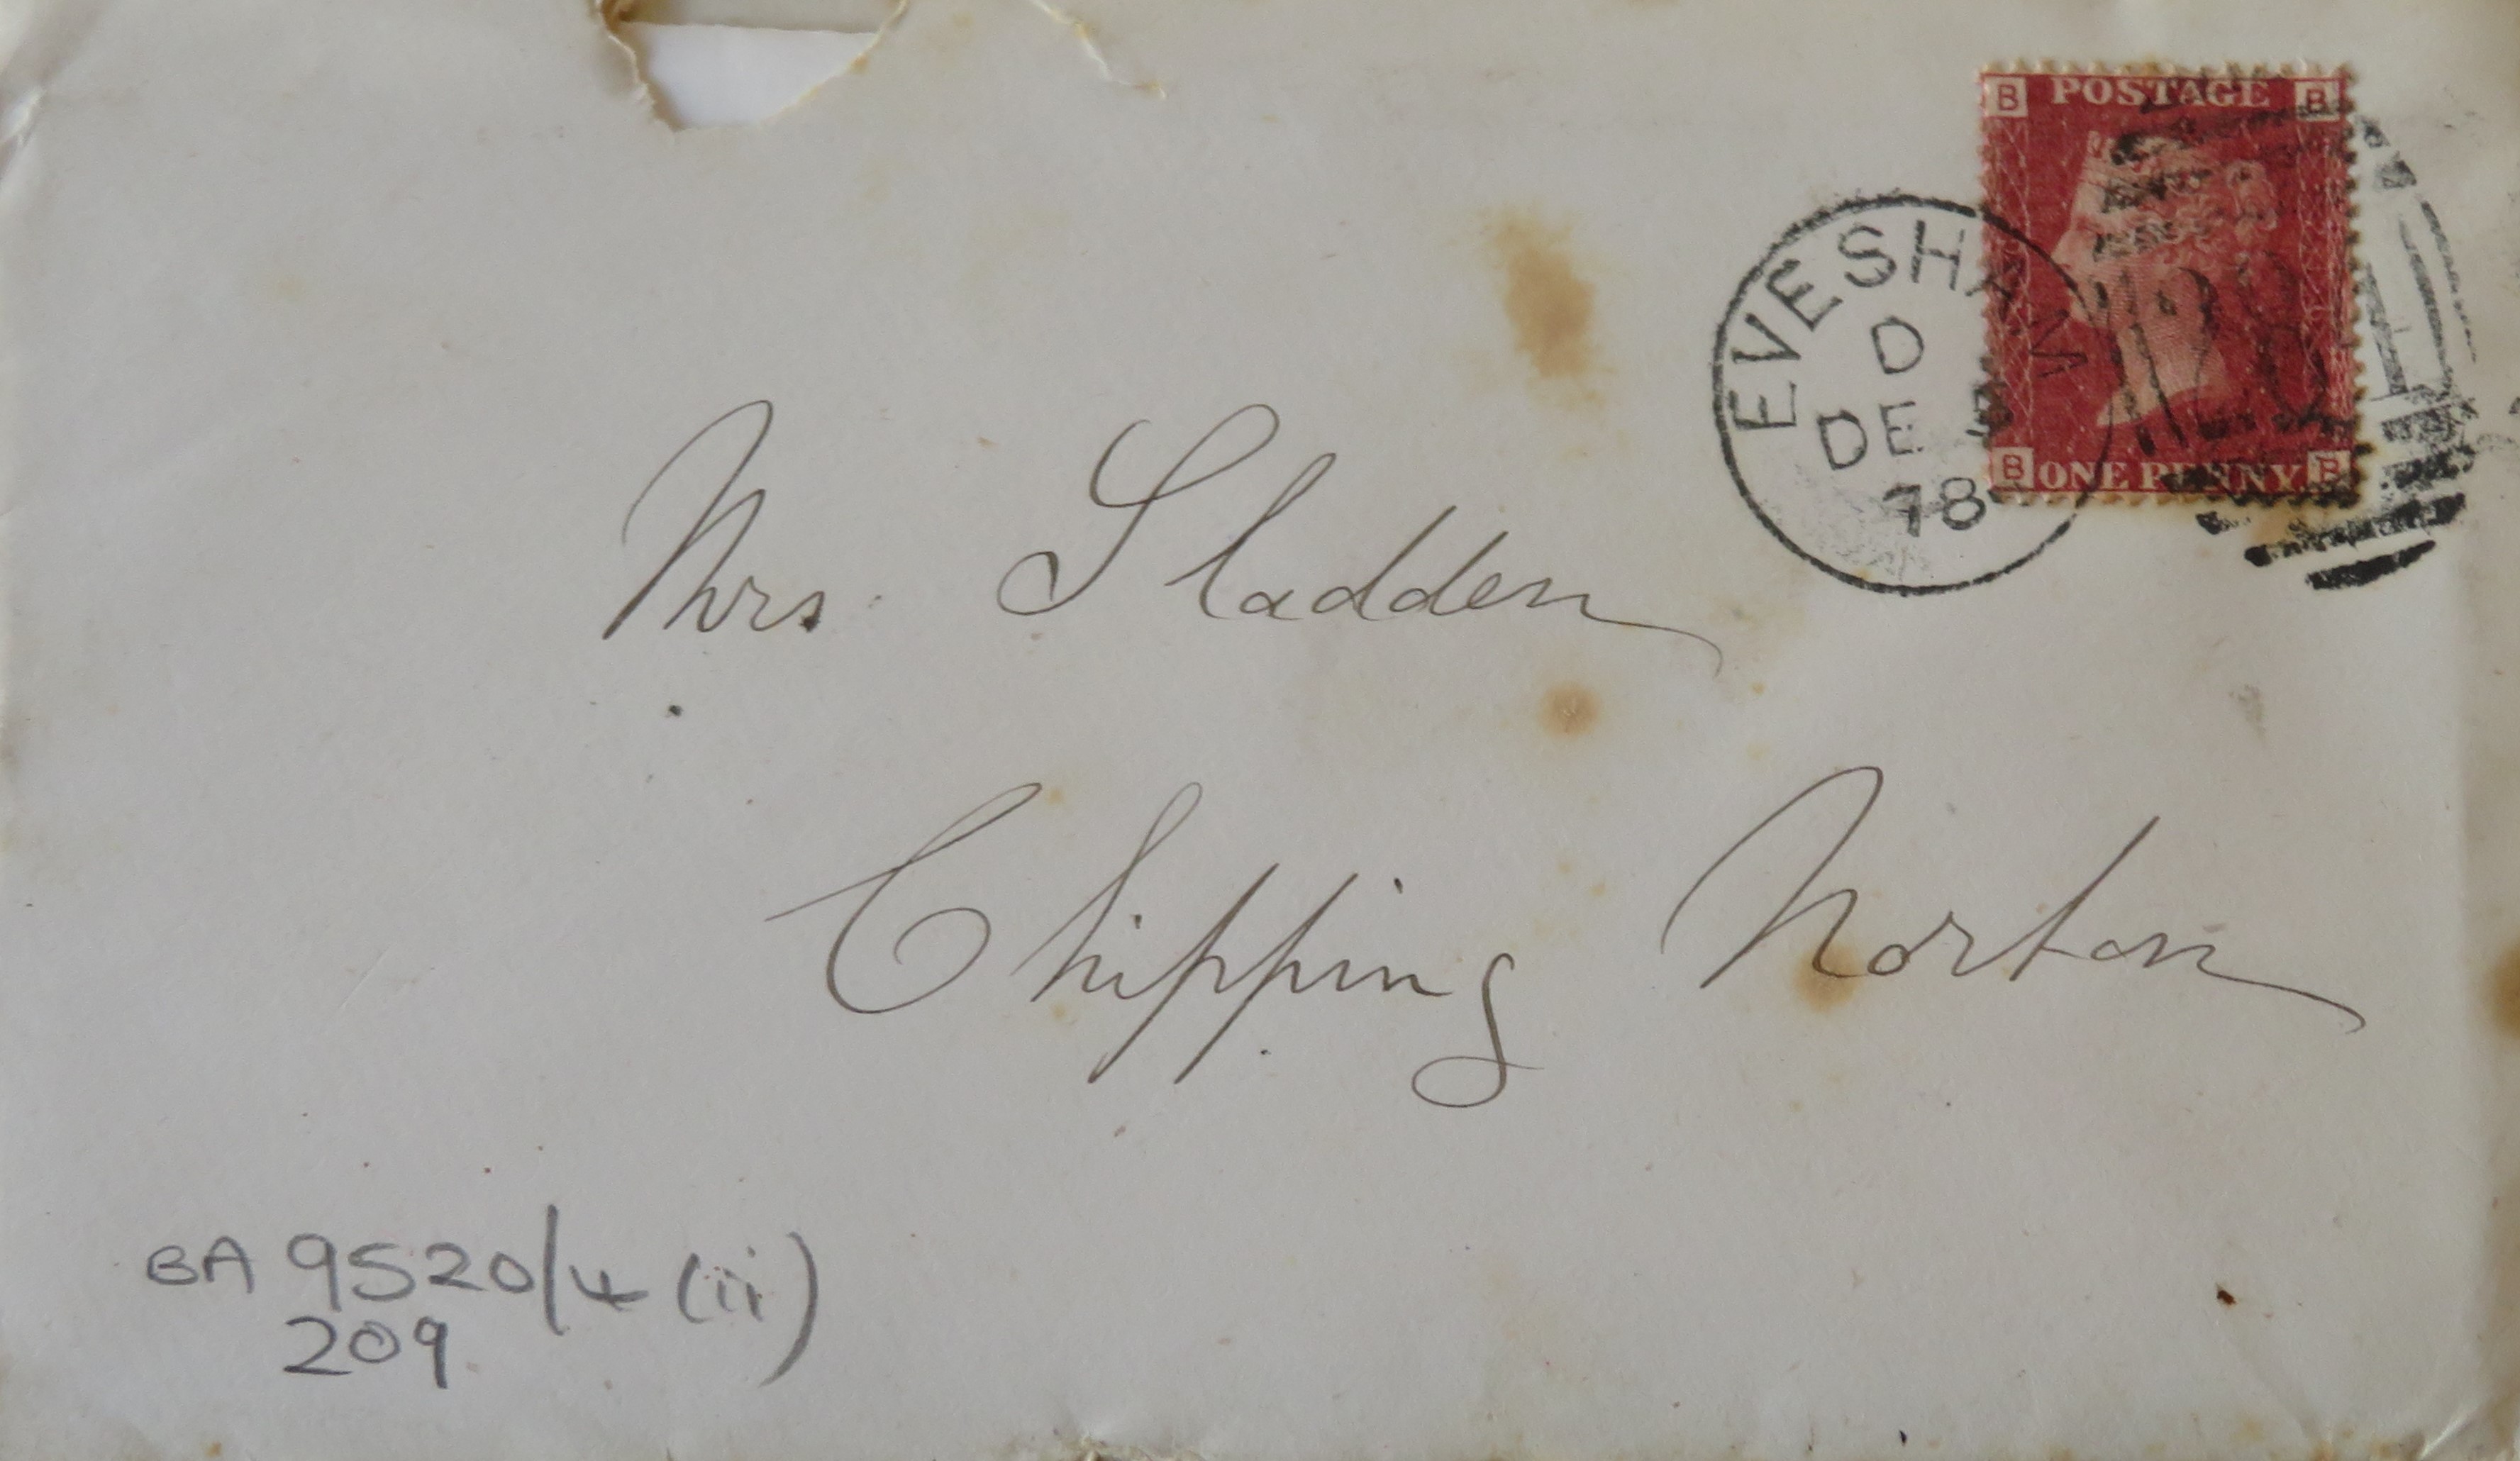 B POSTAGE B
EVESHAM
D
DE 5
78
B ONE PENNY B
Mrs. Sladden
Chipping Norton
BA 9520/4 (ii)
209